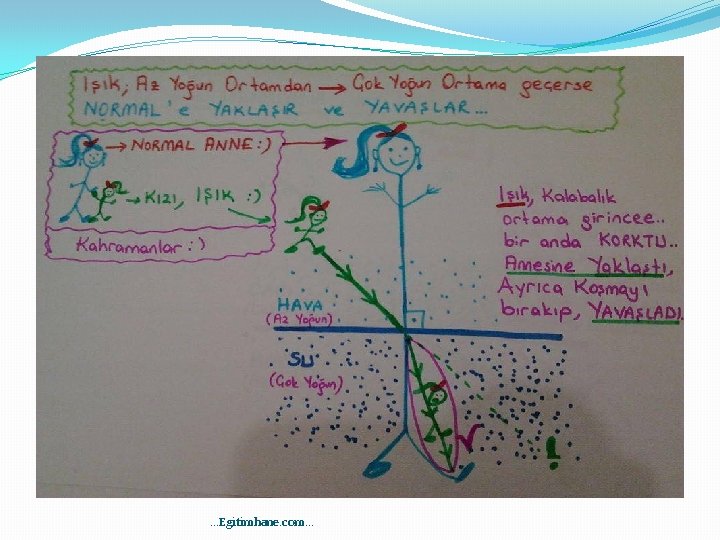 Işık, Az Yoğun Ortamdan → Çok Yoğun Ortama geçerse
NORMAL'e YAKLAŞIR ve YAVAŞLAR...
→ NORMAL ANNE :)
→ KIZI, IŞIK :)
Kahramanlar :)
Işık, Kalabalık
ortama girincee..
bir anda KORKTU..
Annesine Yaklaştı,
Ayrıca Koşmayı
bırakıp, YAVAŞLADI.
HAVA
(Az Yoğun)
SU
(Çok Yoğun)
...Egitimhane.com...